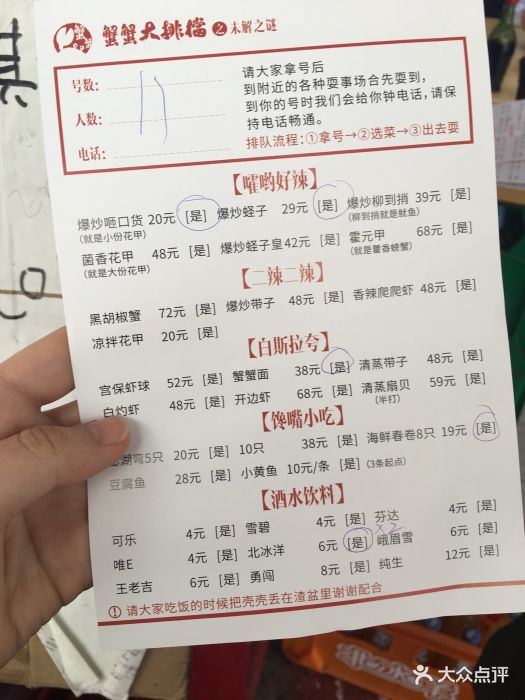 蟹蟹大排檔之未解之谜
号数：
人数：
电话：
请大家拿号后
到附近的各种耍事场合先耍到，
到你的号时我们会给你钟电话，请保
持电话畅通。
排队流程：①拿号→②选菜→③出去耍
【嚯哟好辣】
爆炒咂口货 20元 [是] 爆炒蛏子 29元 [是] 爆炒柳到捎 39元 [是]
(就是小份花甲) (柳到捎就是鱿鱼)
菌香花甲 48元 [是] 爆炒蛏子皇 42元 [是] 霍元甲 68元 [是]
(就是大份花甲) (就是藿香螃蟹)
【二辣二辣】
黑胡椒蟹 72元 [是] 爆炒带子 48元 [是] 香辣爬爬虾 48元 [是]
凉拌花甲 20元 [是]
【白斯拉夸】
宫保虾球 52元 [是] 蟹蟹面 38元 [是] 清蒸带子 48元 [是]
白灼虾 48元 [是] 开边虾 68元 [是] 清蒸扇贝 59元 [是]
(半打)
【馋嘴小吃】
湖湾5只 20元 [是] 10只 38元 [是] 海鲜春卷8只 19元 [是]
豆腐鱼 28元 [是] 小黄鱼 10元/条 [是] (3条起点)
【酒水饮料】
可乐 4元 [是] 雪碧 4元 [是] 芬达 4元 [是]
x2
唯E 4元 [是] 北冰洋 6元 [是] 峨眉雪 6元 [是]
王老吉 6元 [是] 勇闯 8元 [是] 纯生 12元 [是]
① 请大家吃饭的时候把壳壳丢在渣盆里谢谢配合
大众点评